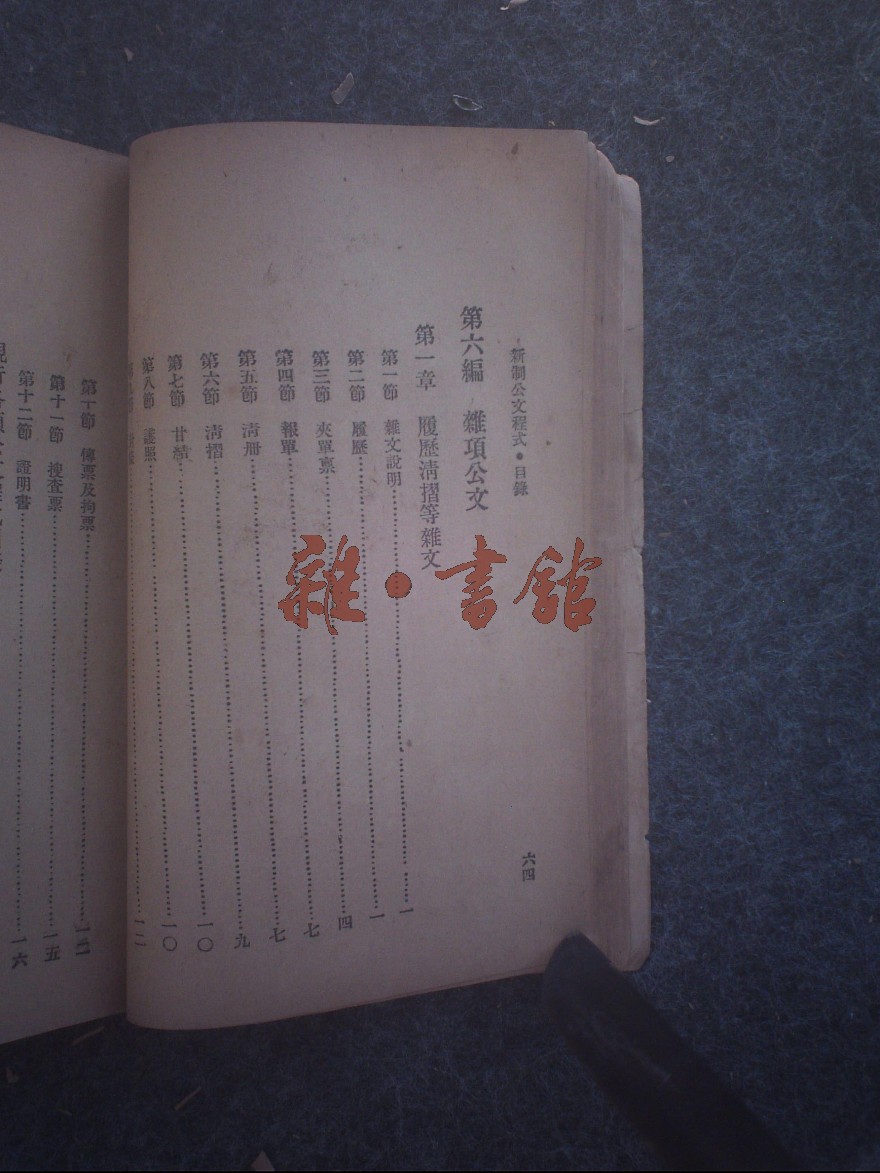 新制公文程式・目錄 六四
第六編 雜項公文
第一章 履歷清摺等雜文
第一節 雜文說明……一
第二節 履歷……一
第三節 夾單稟……四
第四節 報單……七
第五節 清册……七
第六節 清摺……九
第七節 甘結……一〇
第八節 護照……一〇
……一二
第十節 傳票及拘票……
第十一節 搜查票……一五
第十二節 證明書……一六
雜・書館